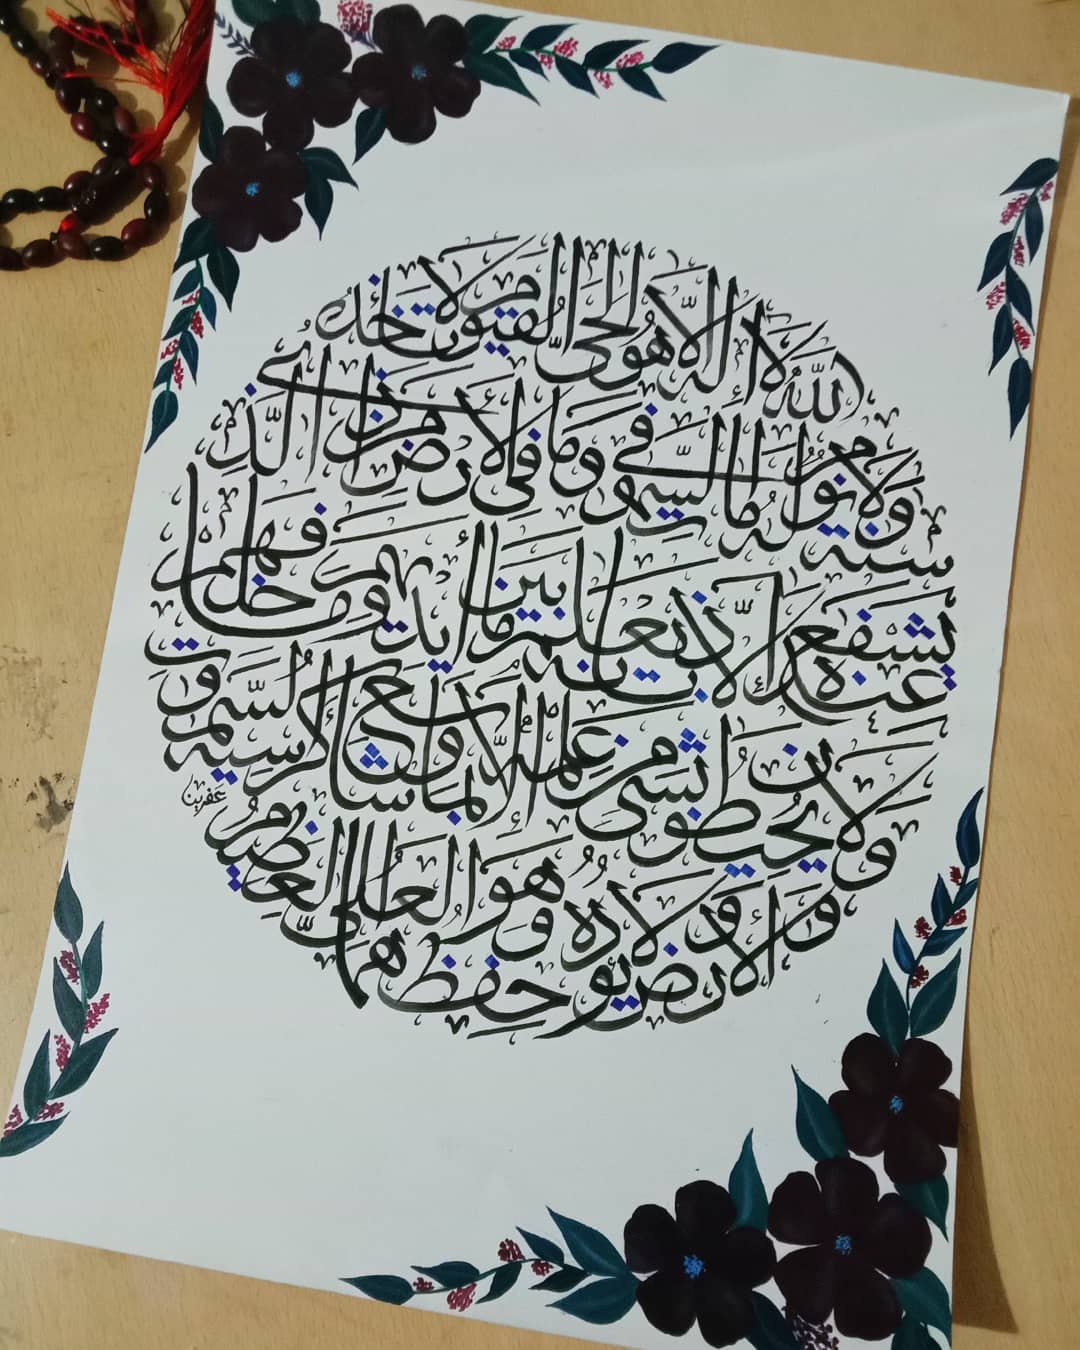 الله لا إله إلا هو الحي القيوم لا تأخذه
سنة ولا نوم له ما في السموت وما في الأرض من ذا الذي
يشفع عنده إلا بإذنه يعلم ما بين أيديهم وما خلفهم
ولا يحيطون بشيء من علمه إلا بما شاء وسع كرسيه السموت
والأرض ولا يؤده حفظهما وهو العلي العظيم
عفرين